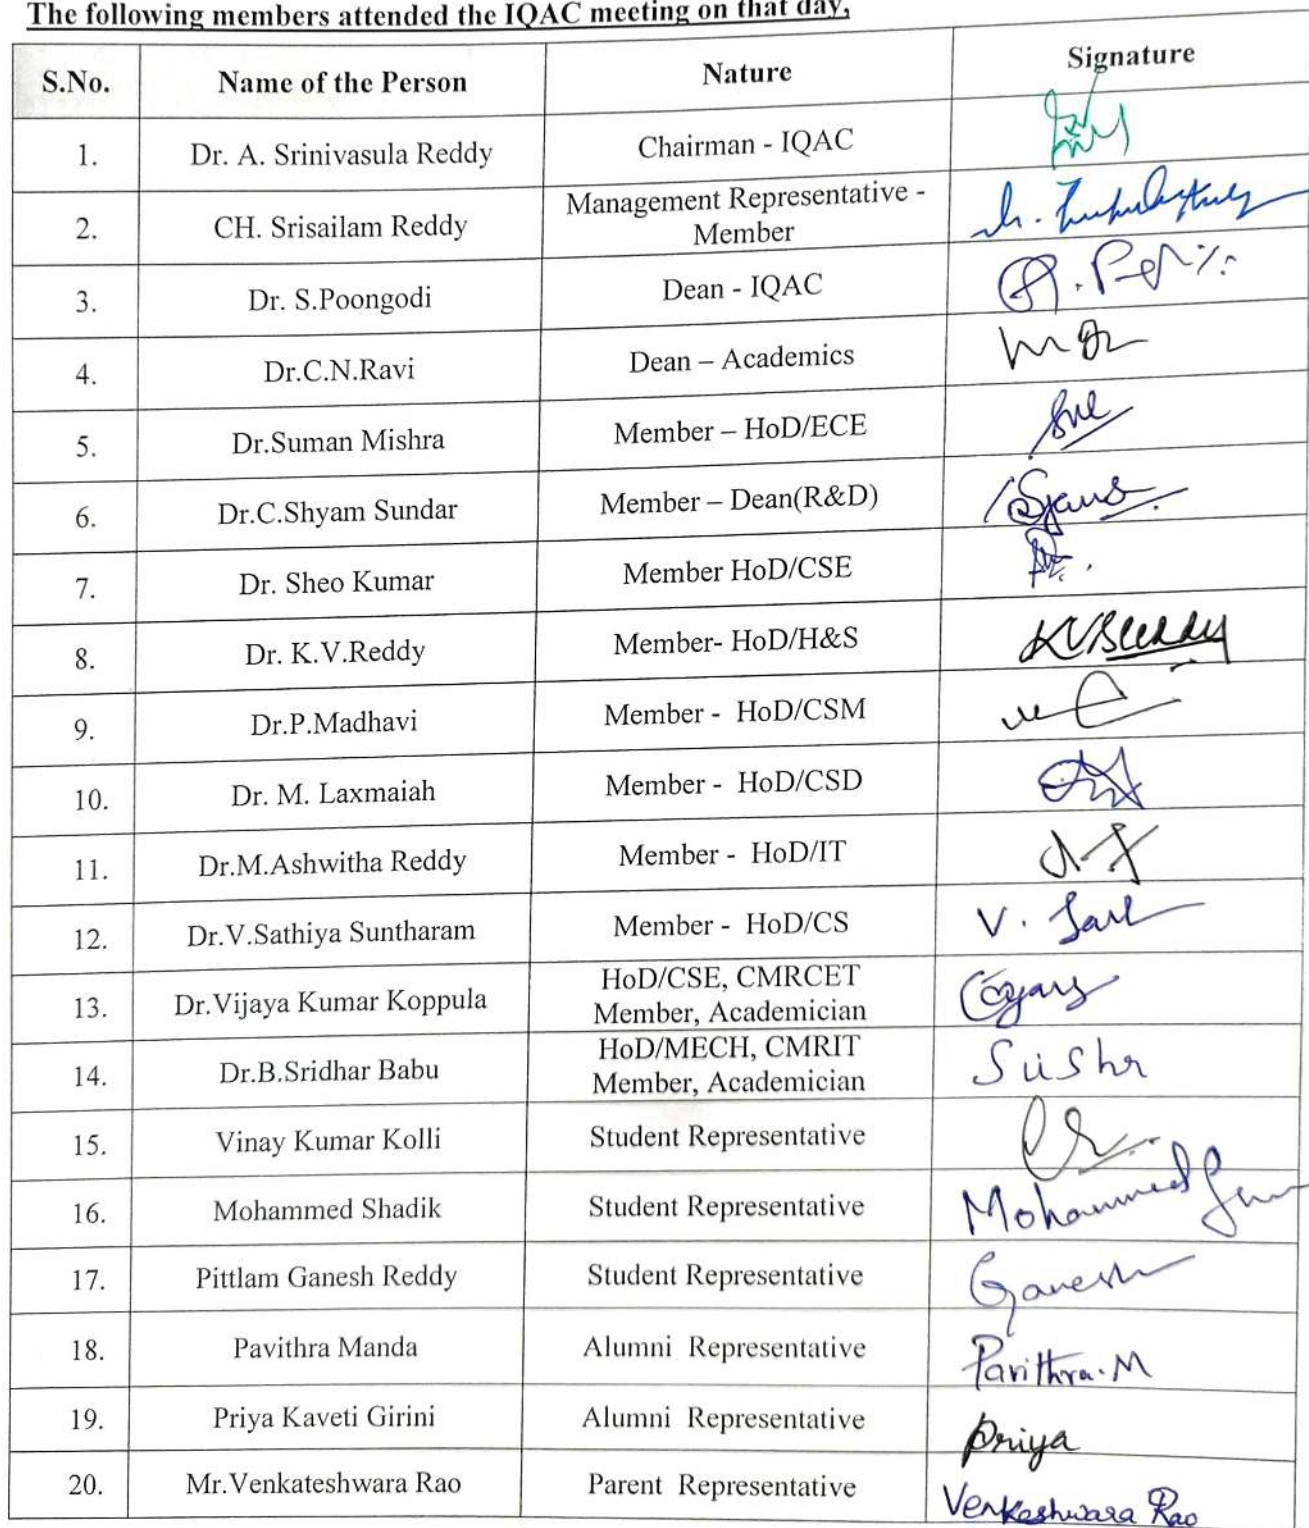 The following members attended the IQAC meeting on that day,
S.No. Name of the Person Nature Signature
1. Dr. A. Srinivasula Reddy Chairman - IQAC
2. CH. Srisailam Reddy Management Representative - Member
3. Dr. S.Poongodi Dean - IQAC
4. Dr.C.N.Ravi Dean – Academics
5. Dr.Suman Mishra Member – HoD/ECE
6. Dr.C.Shyam Sundar Member – Dean(R&D)
7. Dr. Sheo Kumar Member HoD/CSE
8. Dr. K.V.Reddy Member- HoD/H&S KVBReddy
9. Dr.P.Madhavi Member - HoD/CSM
10. Dr. M. Laxmaiah Member - HoD/CSD
11. Dr.M.Ashwitha Reddy Member - HoD/IT
12. Dr.V.Sathiya Suntharam Member - HoD/CS V.
13. Dr.Vijaya Kumar Koppula HoD/CSE, CMRCET Member, Academician
14. Dr.B.Sridhar Babu HoD/MECH, CMRIT Member, Academician
15. Vinay Kumar Kolli Student Representative
16. Mohammed Shadik Student Representative Mohammed
17. Pittlam Ganesh Reddy Student Representative Ganesh
18. Pavithra Manda Alumni Representative Pavithra.M
19. Priya Kaveti Girini Alumni Representative Priya
20. Mr.Venkateshwara Rao Parent Representative Venkeshwara Rao